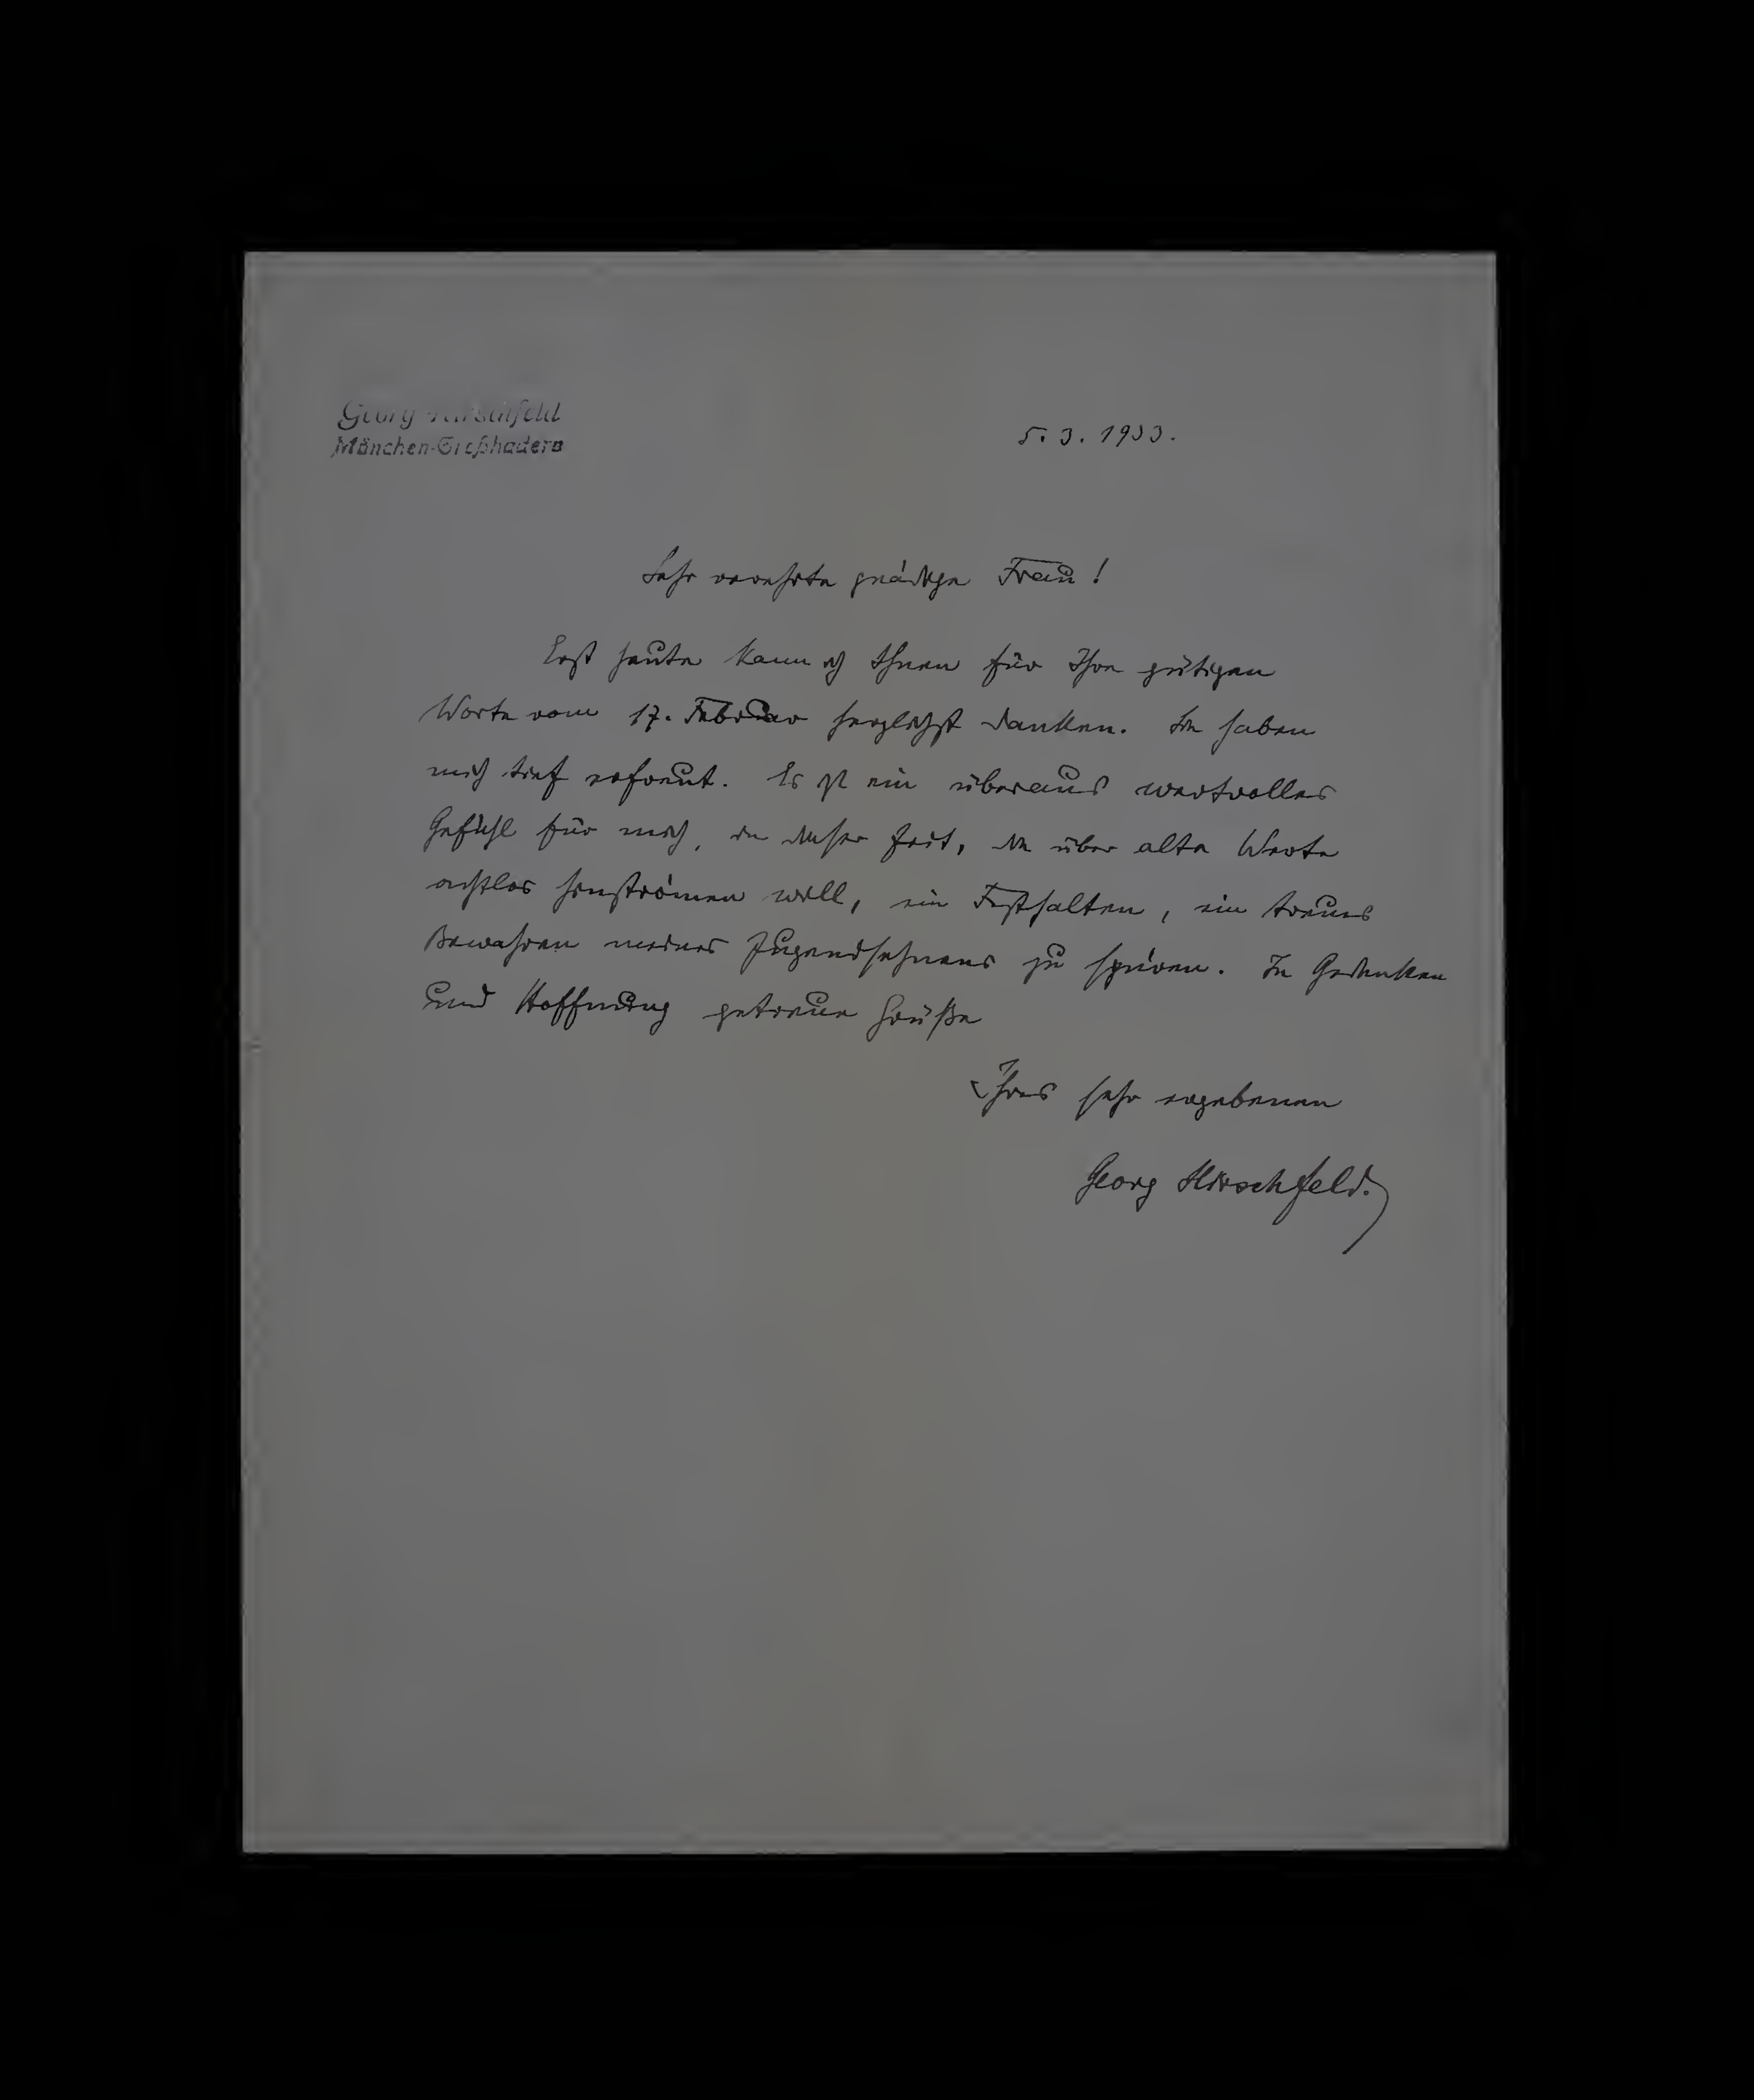 Georg Hirschfeld
München-Großhadern
5. 3. 1933.
Sehr verehrte gnädige Frau!
Erst heute kann ich Ihnen für Ihre gütigen
Worte vom 17. Februar herzlichst danken. Sie haben
mich tief erfreut. Es ist ein überaus wertvolles
Gefühl für mich, in dieser Zeit, die über alte Werte
achtlos hinströmen will, ein Festhalten, ein treues
Bewahren meines Jugendsehnens zu spüren. In Gedenken
und Hoffnung getreue Grüße
Ihres sehr ergebenen
Georg Hirschfeld.